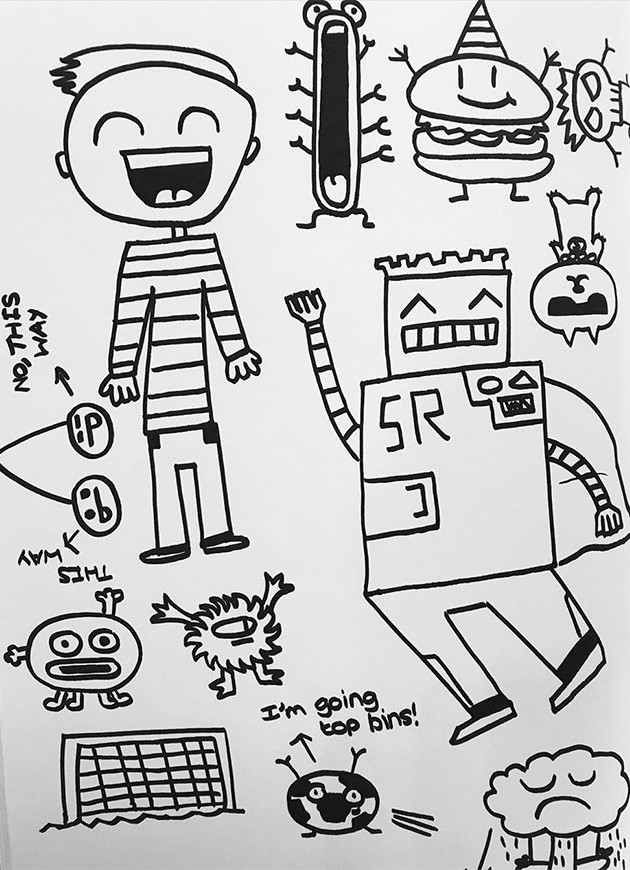 NO, THIS
WAY
SR
THIS
WAY
I'm going
top bins!